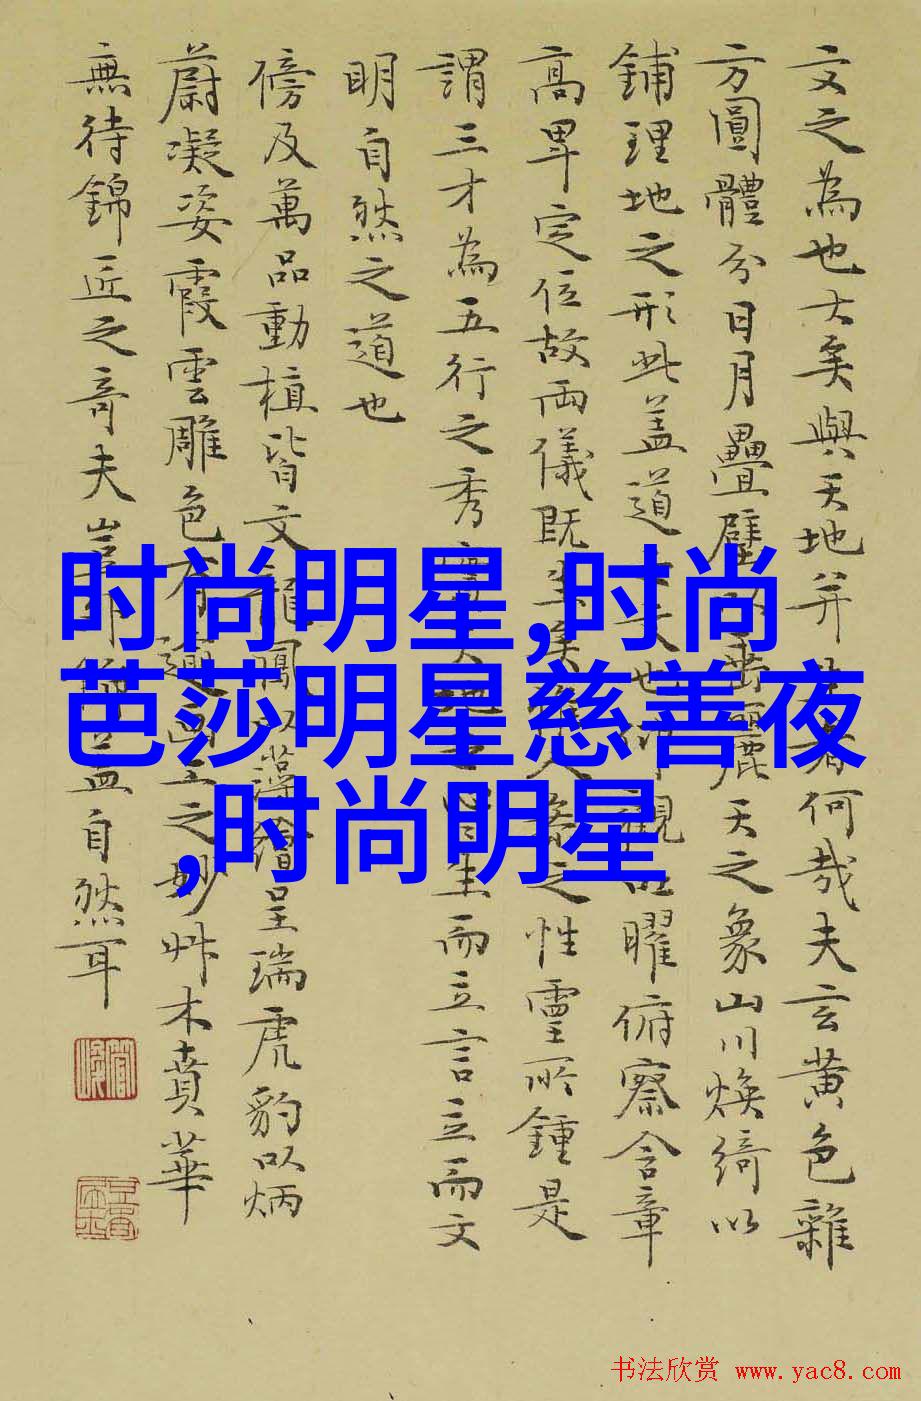 文之為也大矣與天地并生者何哉夫玄黃色雜
方圓體分日月疊璧以垂麗天之象山川煥綺以
鋪理地之形此盖道之文也仰觀吐曜俯察含章
高卑定位故兩儀既生矣惟人參之性靈所鍾是
謂三才為五行之秀實天地之心生而立言立而文
明自然之道也
傍及萬品動植皆文龍鳳以藻繪呈瑞虎豹以炳
蔚凝姿霞雲雕色有踰畫工之妙艸木賁華
無待錦匠之奇夫豈外飾盖自然耳
时尚明星,时尚
芭莎明星慈善夜
,时尚明星
书法欣赏 www.yac8.com